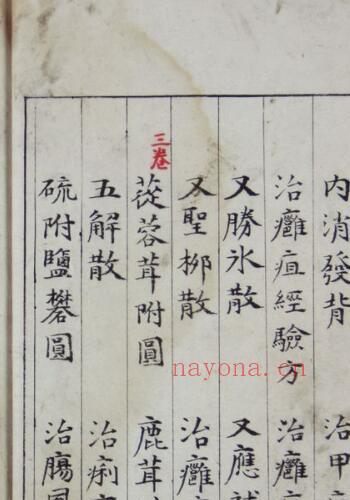 内消發背
治癰疽經驗方
又勝氷散
又聖栁散
三卷
蓯蓉茸附圓
五解散
硫附鹽礬圓
治甲
治癰
又應
治癰
鹿茸
治痢
治腸風
nayona.cn